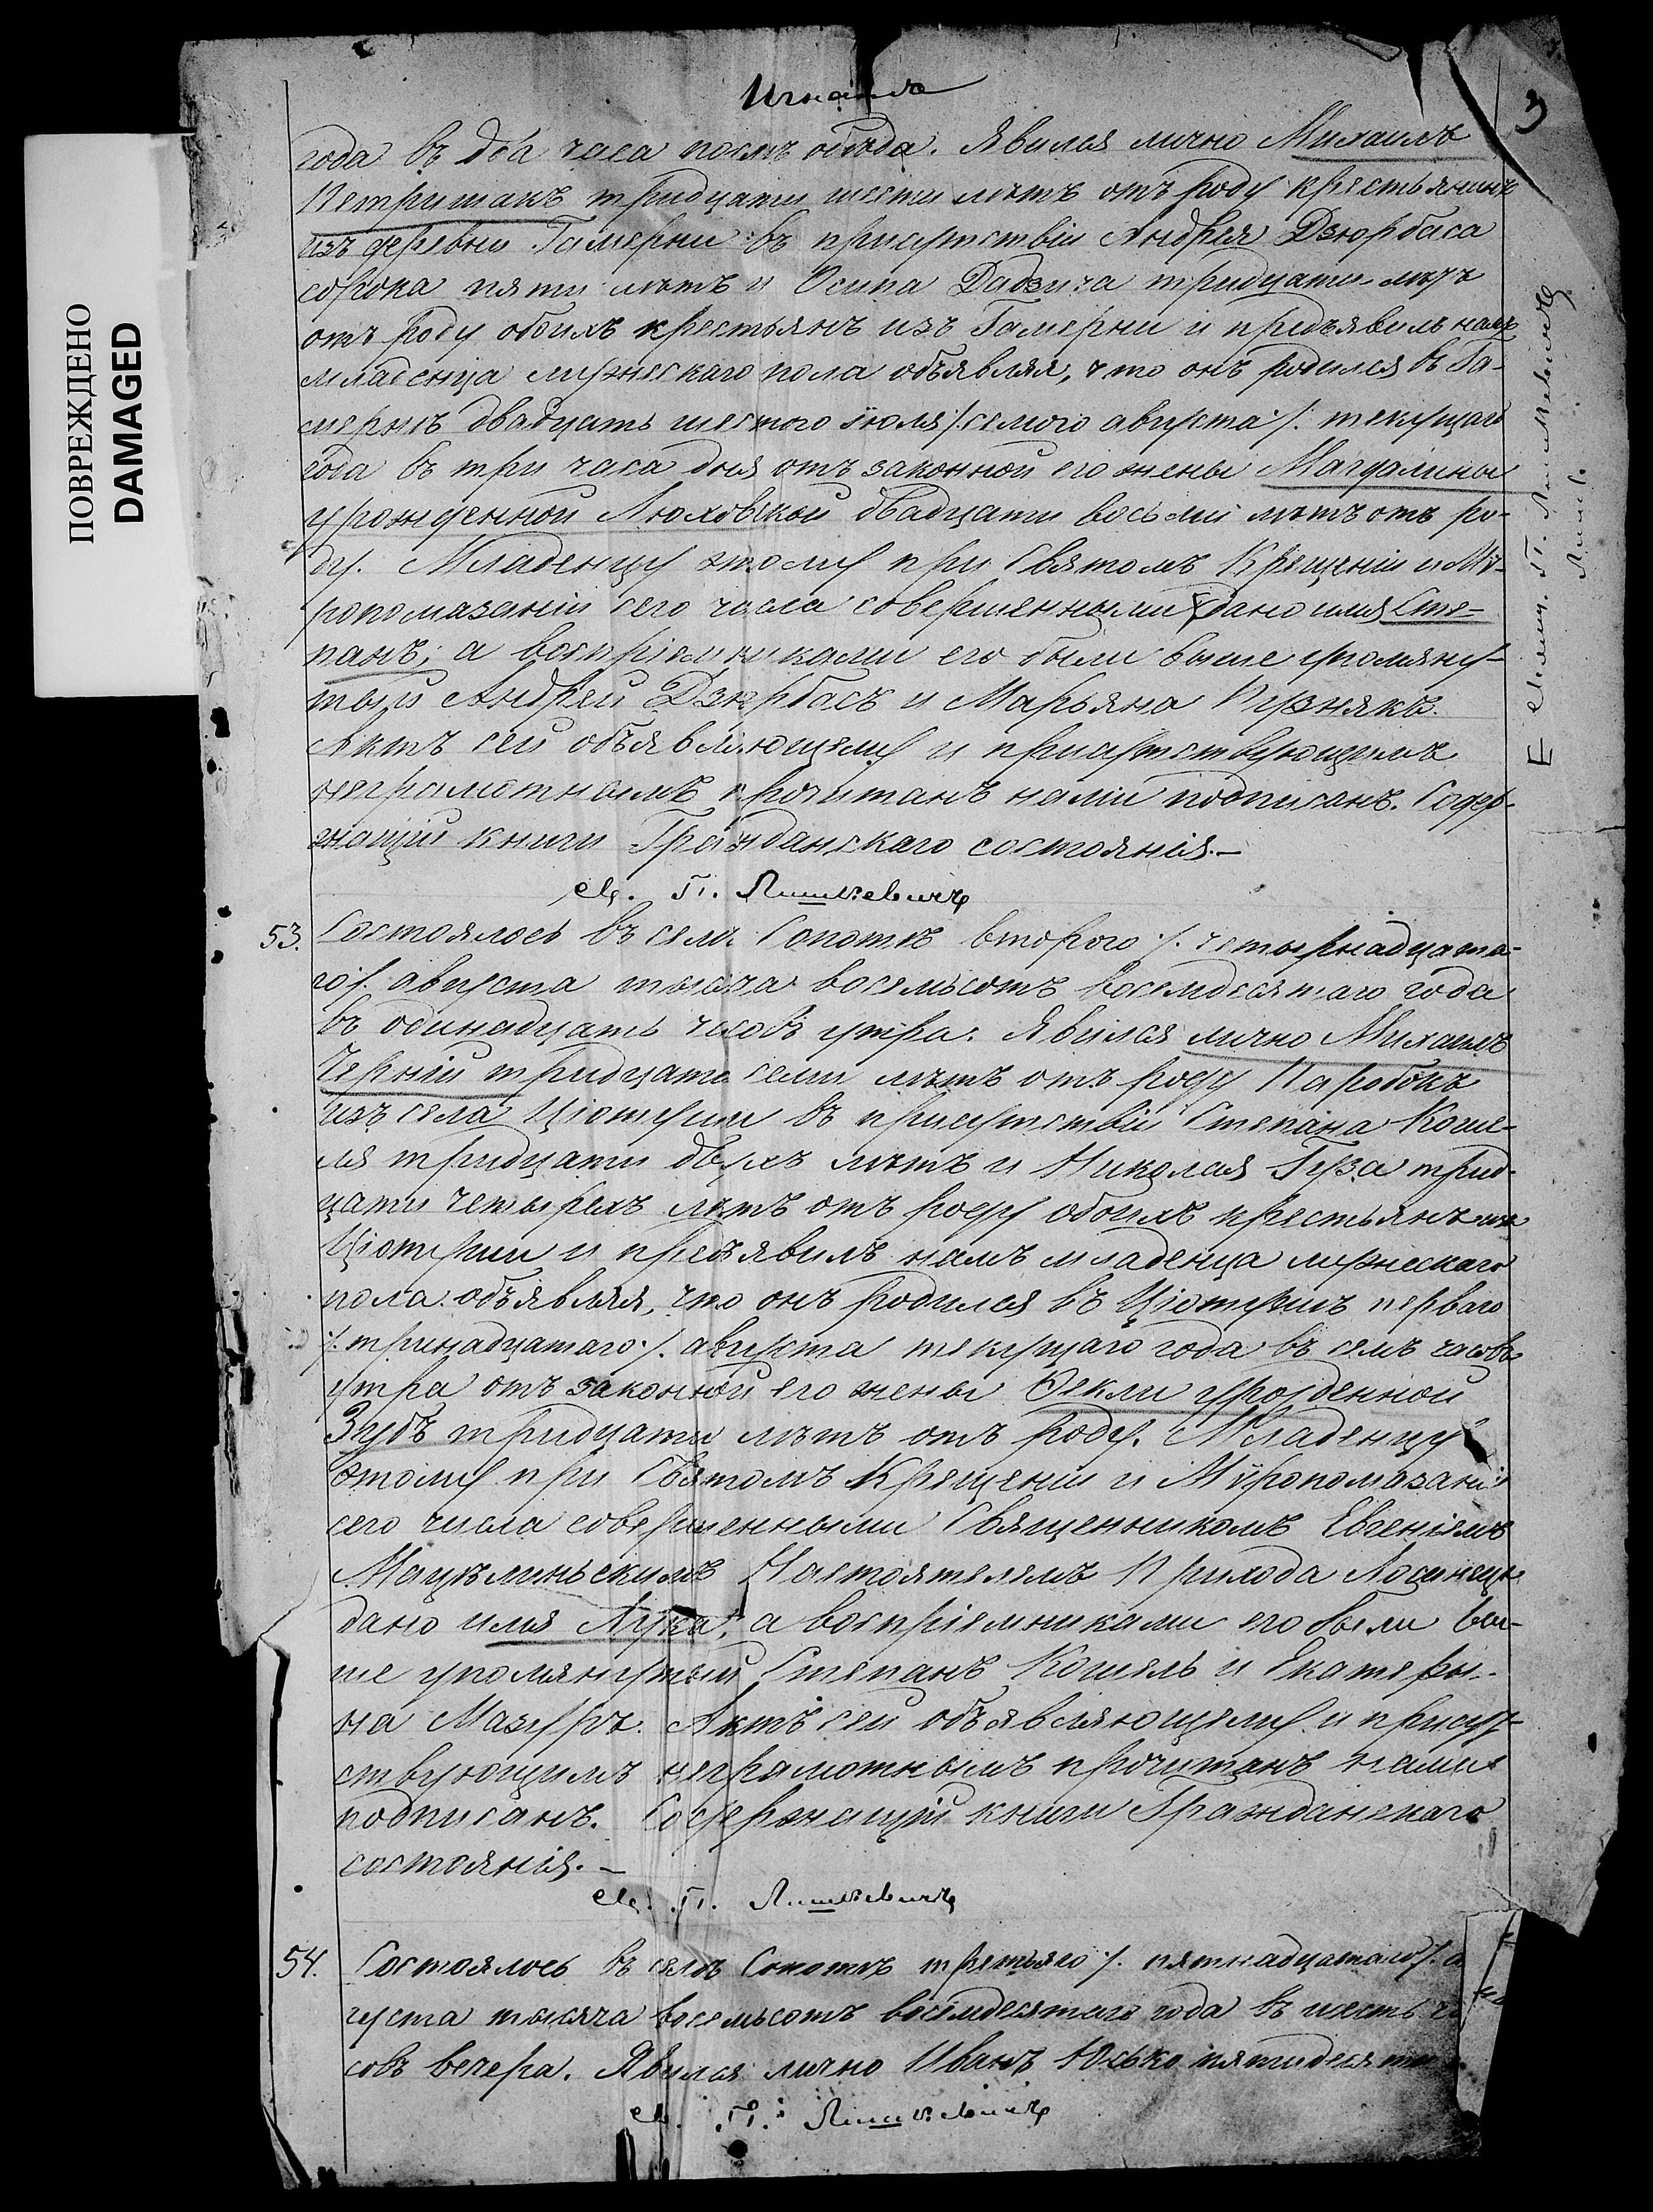 3
ПОВРЕЖДЕНО
DAMAGED
года въ два часа послѣ обѣда. Явился лично Михаилъ
Петришакъ тридцати шести лѣтъ отъ роду крестьянинъ
изъ деревни Гамерни въ присутствіи Андрея Дзюрбаса
сорока пяти лѣтъ и Осипа тридцати лѣтъ
отъ роду обоихъ крестьянъ изъ Гамерни и предъявилъ намъ
младенца мужескаго пола объявляя, что онъ родился въ Га-
мернѣ двадцать шестого іюля /:седмого августа:/ текущаго
года въ три часа дня отъ законной его жены Магдалины
урожденной Люховской двадцати восьми лѣтъ отъ ро-
ду. Младенцу этому при Святомъ Крещеніи и Мѵ-
ропомазаніи сего числа совершенными дано имя Сте-
панъ, а воспріемниками его были выше упомяну-
тый Андрей Дзюрбасъ и Марьяна Пузнякъ.
Актъ сей объявляющему и присутствующимъ
неграмотнымъ прочитанъ нами подписанъ. Содер-
жащій книги Гражданскаго состоянія.—
53. Состоялось въ селѣ Сопотѣ второго /: четырнадцата-
го /: августа тысяча восемьсотъ восемдесятаго года
въ одинадцать часовъ утра. Явился лично Михаилъ
Черній тридцати семи лѣтъ отъ роду Паробокъ
изъ села Ціотуши въ присутствіи Степана Коше-
ля тридцати двухъ лѣтъ и Николая Гуза трид-
цати четырехъ лѣтъ отъ роду обоихъ крестьянъ изъ
Ціотуши и предъявилъ намъ младенца мужескаго
пола объявляя, что онъ родился въ Ціотушѣ перваго
/: тринадцатаго :/ августа текущаго года въ семъ часовъ
утра отъ законной его жены Ѳекли урожденной
Зубъ тридцати лѣтъ отъ роду. Младенцу
этому при Святомъ Крещеніи и Мѵропомазаніи
сего числа совершенными Священникомъ Евгеніемъ
Настоятелемъ Прихода
дано имя Лука, а воспріемниками его были вы-
ше упомянутый Степанъ Кошель и Екатери-
на Мазуръ. Актъ сей объявляющему и присут-
ствующимъ неграмотнымъ прочитанъ нами
подписанъ. Содержащій книги Гражданскаго
состоянія.—
54. Состоялось въ селѣ Сопотѣ третьяго /: пятнадцатаго /: а
густа тысяча восемьсотъ восемдесятаго года въ шесть ча
совъ вечера. Явился лично Иванъ пятидесяти